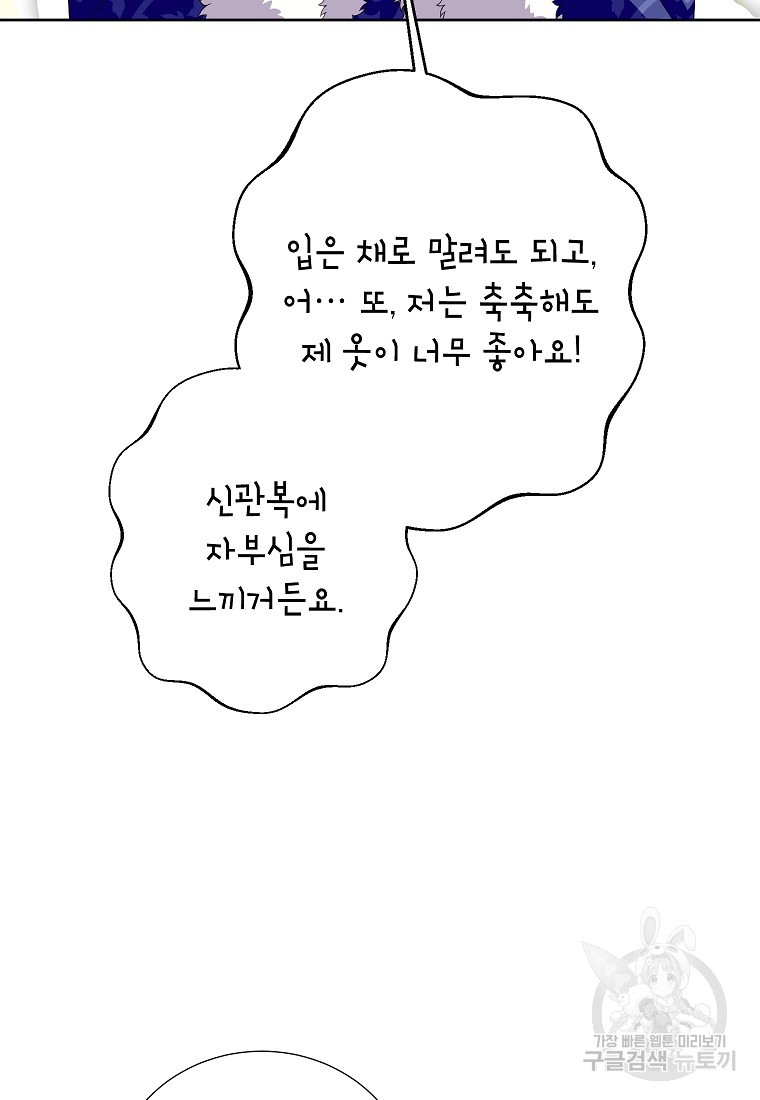 입은 채로 말려도 되고,
어… 또, 저는 축축해도
제 옷이 너무 좋아요!
신관복에
자부심을
느끼거든요.
가장 빠른 웹툰 미리보기
구글검색 뉴토끼